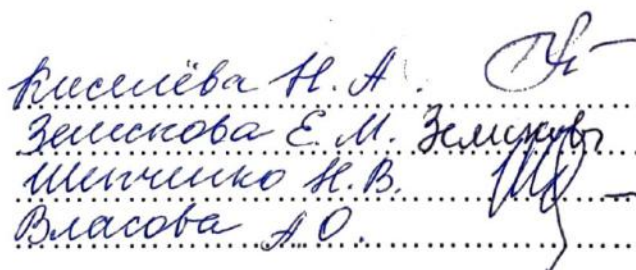 Киселёва Н. А.
Земскова Е. М. Земскова
Шевченко Н. В.
Власова А О.